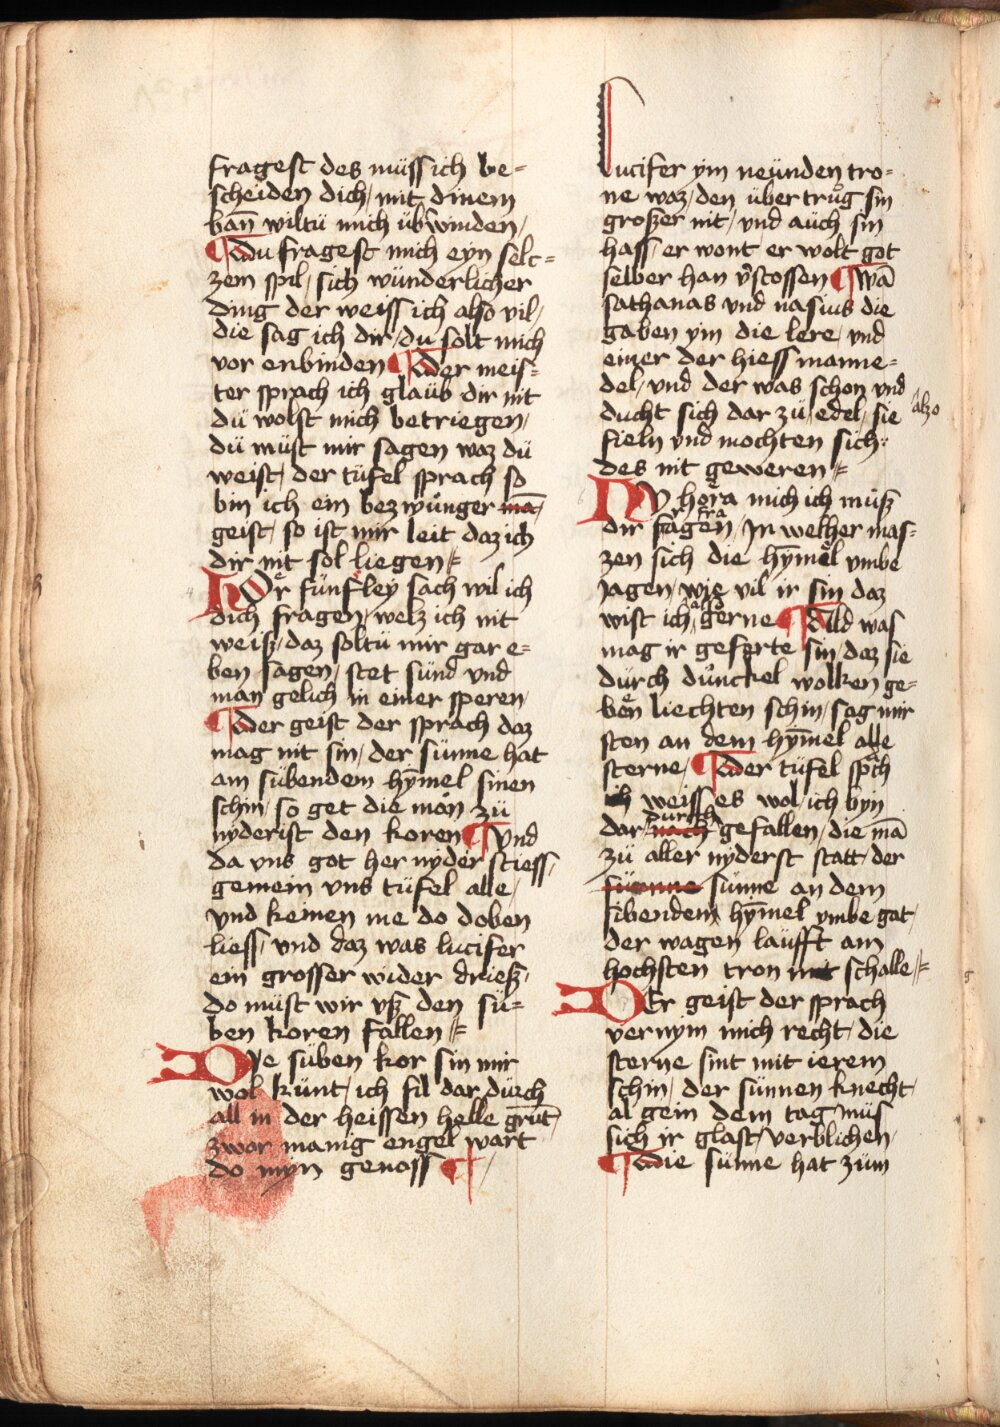 fragest des müss ich be=
scheiden dich / mit dinem
ban̄ wiltü mich übʼwinden /
¶ du fragest mich eyn selt=
zem spil / sich wünderlicher
ding der weiss ich also vil /
die sag ich dir / du solt mich
vor enbinden ¶ der meis=
ter sprach ich glaüb dir nit
dü wolst mich betriegen /
dü müst mir sagen waz dü
weist / der tüfel sprach so
bin ich ein bezwünger mā
geist / so ist mir leit daz ich
dir nit sol liegen /=
Hoͤr fünfley sach wil ich
dich fragen / welz ich nit
weiß / daz soltü mir gar e=
ben sagen / stet sünd vnd
man gelich in einer speren /
¶ der geist der sprach daz
mag nit sin / der sünne hat
am sübendem hȳmel sinen
schin / so get die mon zü
nyderist den koren ¶ vnd
da vns got her nyder stiess /
gemein vns tüfel alle /
vnd keinen me do doben
liess / vnd daz was lucifer
ein grosser wider drieß /
do müst wir vß den sü=
ben koren fallen /=
Dye süben kor sin mir
wol künt / ich fil dar dürch
all in der heissen helle grūt /
zwar manig engel wart
do myn genoss ¶ /
lucifer ym neünden tro=
ne waz / den über truͦg sin
großer nit / vnd aüch sin
hass / er wont er wolt got
selber han vʼstossen ¶ wā
sathanas vnd nasius die
gaben ym die lere / vnd
einer der hiess manne=
del / vnd der was schon vnd
ducht sich dar zü / edel / sie also
fieln vnd mochten sich
des nit geweren /=
NV hoͤra mich ich müß
dir sagen fra / In welher mas=
zen sich die hȳmel vmbe
jagen / wie vil ir sin daz
wist ich also gerne ¶ ald was
mag ir geferte sin / daz sie
dürch duͤnckel wolken ge=
ben liechten schin / sag mir
sten an dem hȳmel alle
sterne / ¶ der tüfel sp̄ch
ich weiss es wol / ich byn
dar / nach dürch gefallen / die mā
zü aller nyderst statt / der
süenne sünne an dem
sibendem hȳmel vmbe gat /
der wagen laüfft am
hochsten tron mit schalle /=
Der geist der sprach
vernym mich recht / die
sterne sint mit ierem
schin / der sünnen knecht /
al gein dem tag müs
sich ir glast / verblichen /
¶ die sünne hat züm